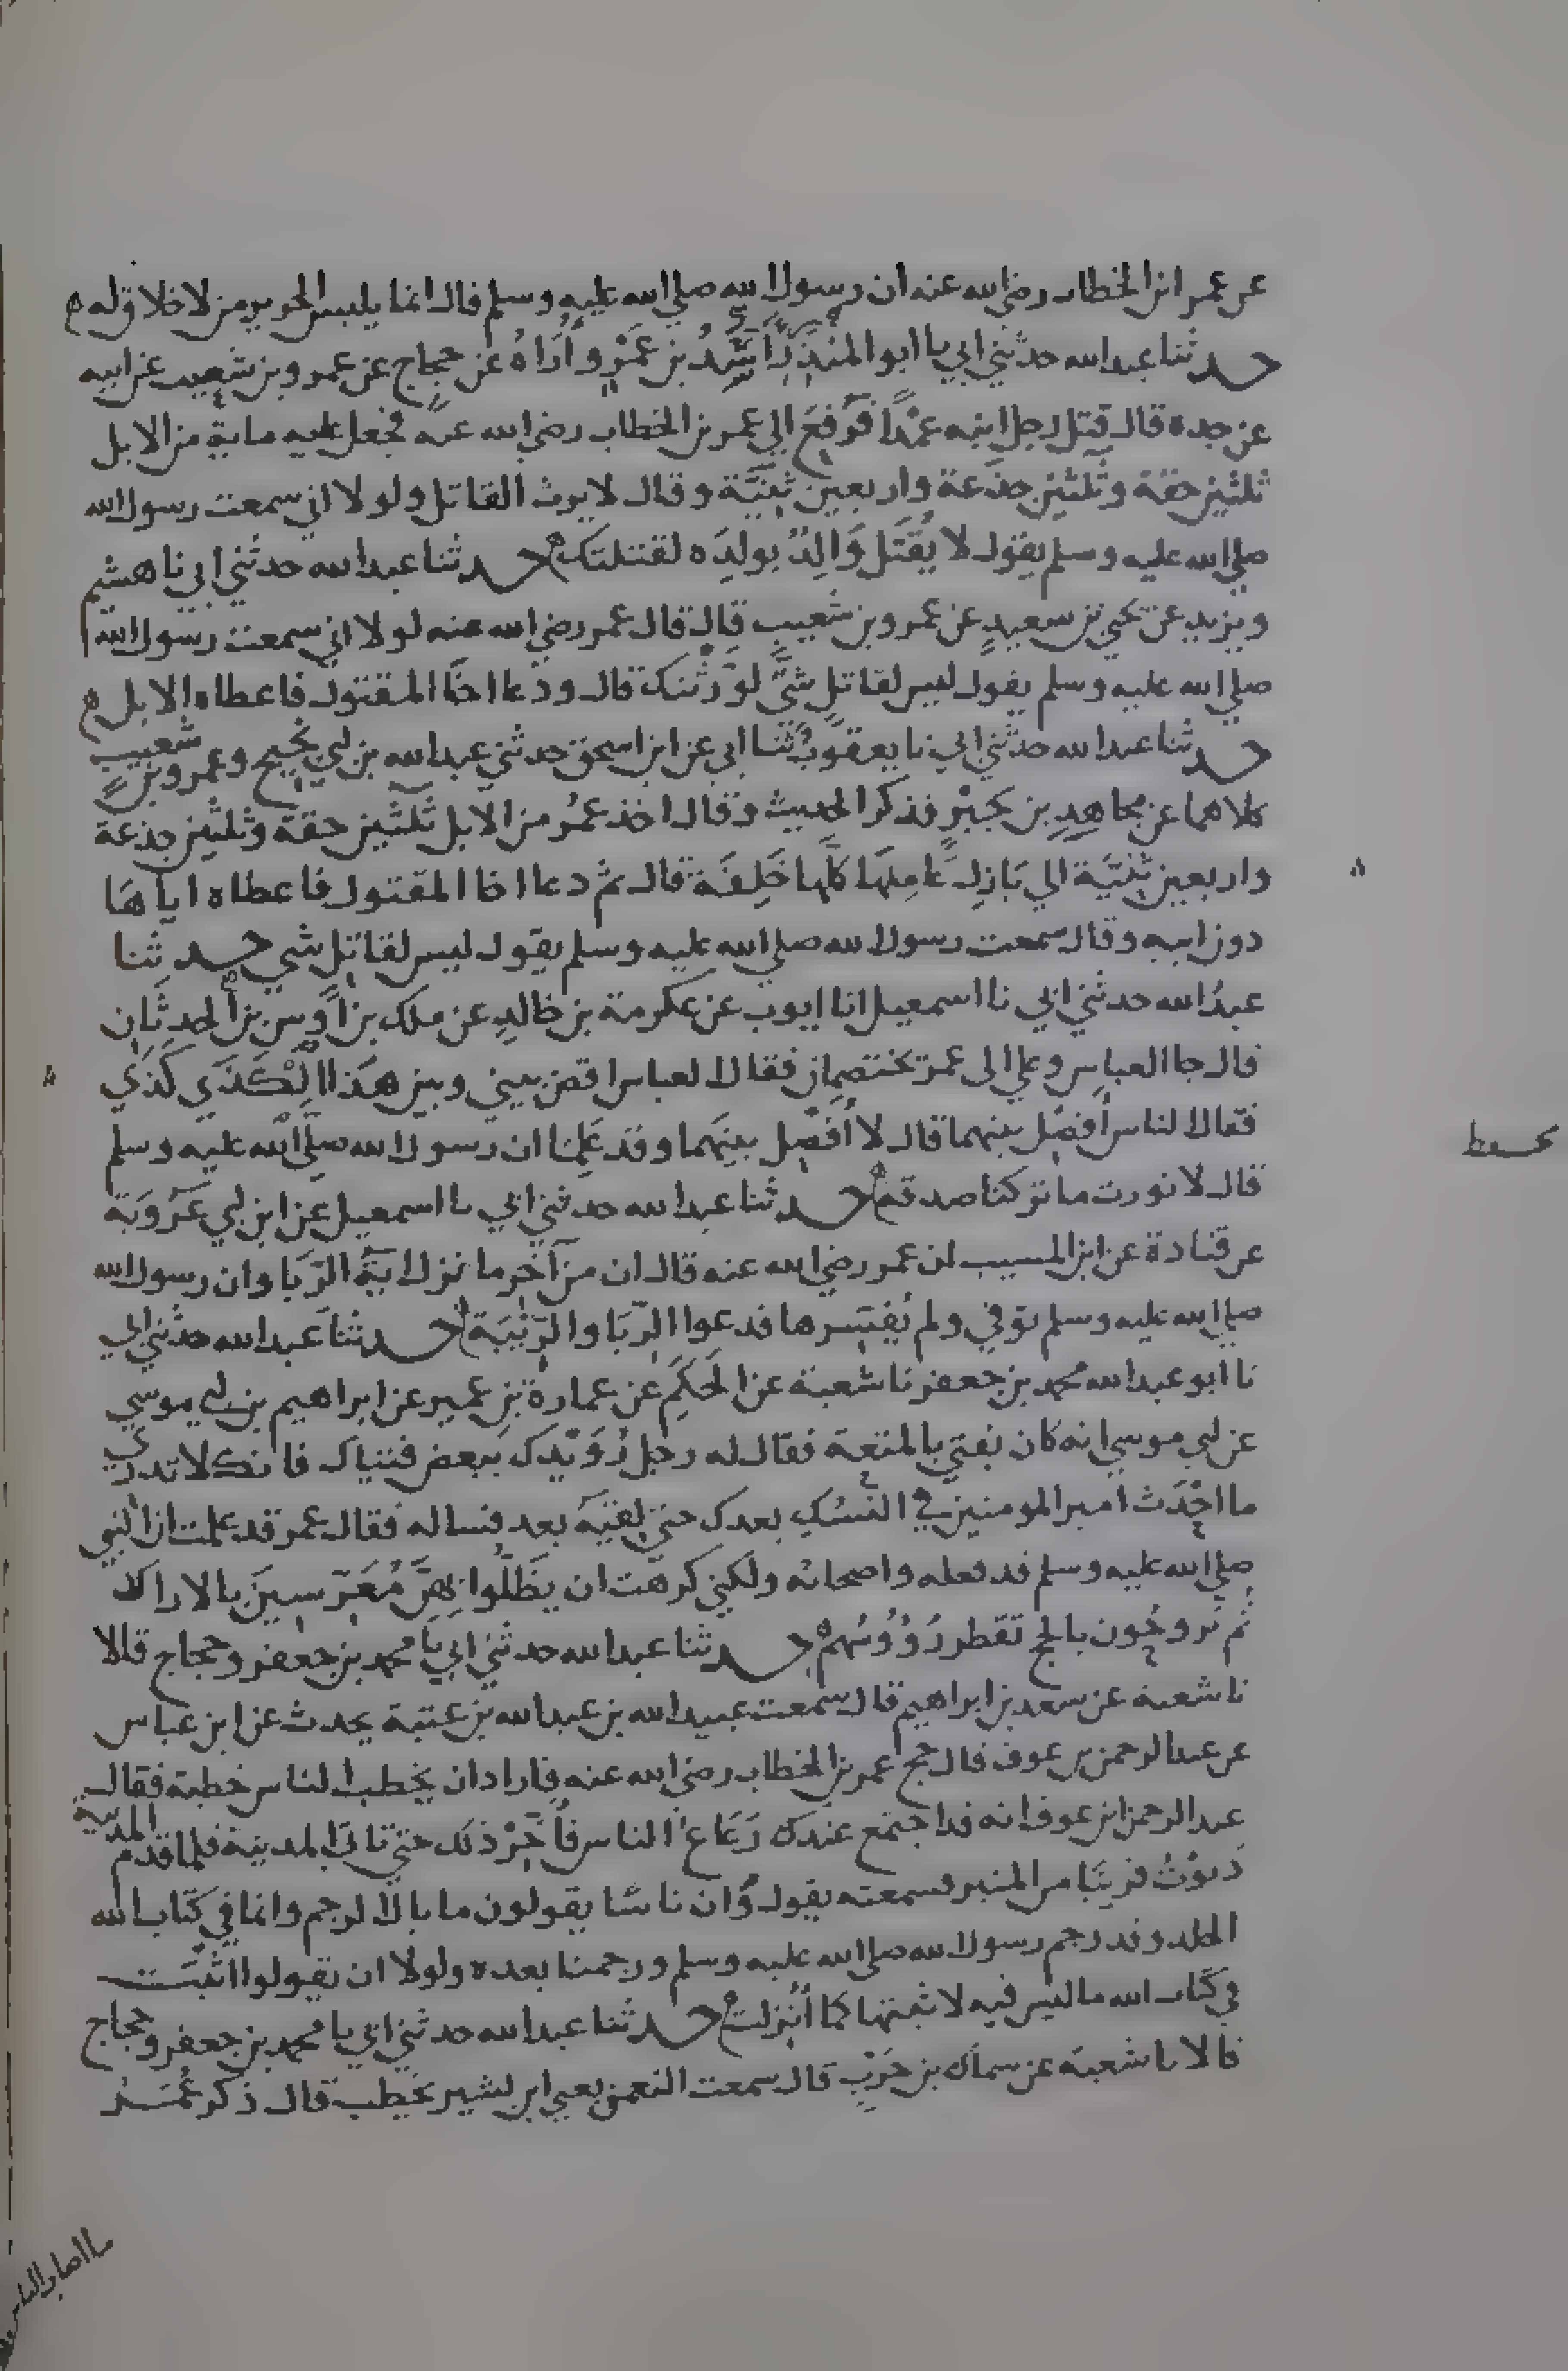 عن عمر ابن الخطاب رضي الله عنه ان رسول الله صلى الله عليه وسلم قال انما يلبس الحرير من لا خلاق له
حدثنا عبد الله حدثني ابي نا ابو المنذر اسد بن عمرو أُراه عن حجاج عن عمرو بن شعيب عن ابيه
عن جده قال قتل رجل ابنه عمدًا فرفع الى عمر بن الخطاب رضي الله عنه فجعل عليه ماية من الابل
ثلثين حقة وثلثين جذعة واربعين ثنيّة وقال لا يرث القاتل ولولا اني سمعت رسول الله
صلى الله عليه وسلم يقول لا يُقتل وَالِدٌ بولدِه لقتلتك حدثنا عبد الله حدثني ابي نا هشيم
ويزيد عن يحيى بن سعيدٍ عن عمرو بن شعيبٍ قال قال عمر رضي الله عنه لولا اني سمعت رسول الله
صلى الله عليه وسلم يقول ليس لقاتلٍ شيٌ لوَرّثتك قال ودعا اخا المقتول فاعطاه الابل
حدثنا عبد الله حدثني ابي نا يعقوبُ ثنا ابي عن ابن اسحق حدثني عبد الله بن ابي نجيح وعمرو بن شعيب
كلاهما عن مجاهدِ بن جبرٍ فذكر الحديث وقال اخذ عمرُ من الابل ثلثين حقة وثلثين جذعة
واربعين ثنيَّة الى بَازِل عَامِهَا كلّها خَلِفَة قال ثم دعا اخا المقتول فاعطاه اياهَا
دون ابيه وقال سمعت رسول الله صلى الله عليه وسلم يقول ليس لقاتل شي حدثنا
عبدُ الله حدثني ابي نا اسمعيل انا ايوب عن عكرمة بن خالدٍ عن ملك بن أوس بن الحدثان
قال جا العباس وعلي الى عمر يختصمان فقال العباس اقض بيني وبين هذا الكذَى كذَى
فقال الناس أفصل بينهما قال لا أفصل بينهما وقد علمنا ان رسول الله صلى الله عليه وسلم
قال لا نورث ما تركنا صدقة حدثنا عبد الله حدثني ابي نا اسمعيل عن ابن ابي عَرُوبَة
عن قتادة عن ابن المسيب ان عمر رضي الله عنه قال ان من آخر ما نزل اية الرّبَا وان رسول الله
صلى الله عليه وسلم توفي ولم يُفسّرها فدعوا الرّبَا والرّيبَة حدثنا عبد الله حدثني ابي
نا ابو عبد الله محمد بن جعفر نا شعبة عن الحَكَمِ عن عمارة بن عمير عن ابراهيم بن ابي موسى
عن ابي موسى انه كان يفتي بالمتعة فقال له رجل رُوَيْدك ببعض فتياك فانك لا تدري
ما احْدَث امير المومنين في النسُك بعدك حتى لقيَهُ بعد فساله فقال عمر قد علمت ان النبي
صلى الله عليه وسلم قد فعله واصحابه ولكني كرهت ان يظَلّوا بهنّ مُعَرّسينَ بالاراك
ثم يروحُون بالحج تقطر رُؤُوسُهم حدثنا عبد الله حدثني ابي نا محمد بن جعفر وحجاج قالا
نا شعبة عن سعد بن ابراهيم قال سمعت عبيد الله بن عبد الله بن عتبة يحدث عن ابن عباس
عن عبد الرحمن بن عوف قال حج عمر بن الخطاب رضي الله عنه فاراد ان يخطب الناس خطبة فقال
عبد الرحمن ابن عوف انه قد اجتمع عندك رَعَاع الناس فأَخّرْ ذلك حتى تاتي المدينة فلما قدم المدينة
دنوْتُ قريبًا من المنبر فسمعته يقول وَان ناسًا يقولون ما بال الرجم وانما في كتاب الله
الجلد وقد رجم رسول الله صلى الله عليه وسلم ورجمنا بعده ولولا ان يقولوا اثبت
في كتاب الله ما ليس فيه لاثبتها كما أُنزلت حدثنا عبد الله حدثني ابي نا محمد بن جعفر وحجاج
قالا نا شعبة عن سماك بن حَرْبٍ قال سمعت النعمن يعني ابن بشير يخطب قال ذكر عُمَرُ
ما اصاب الناس